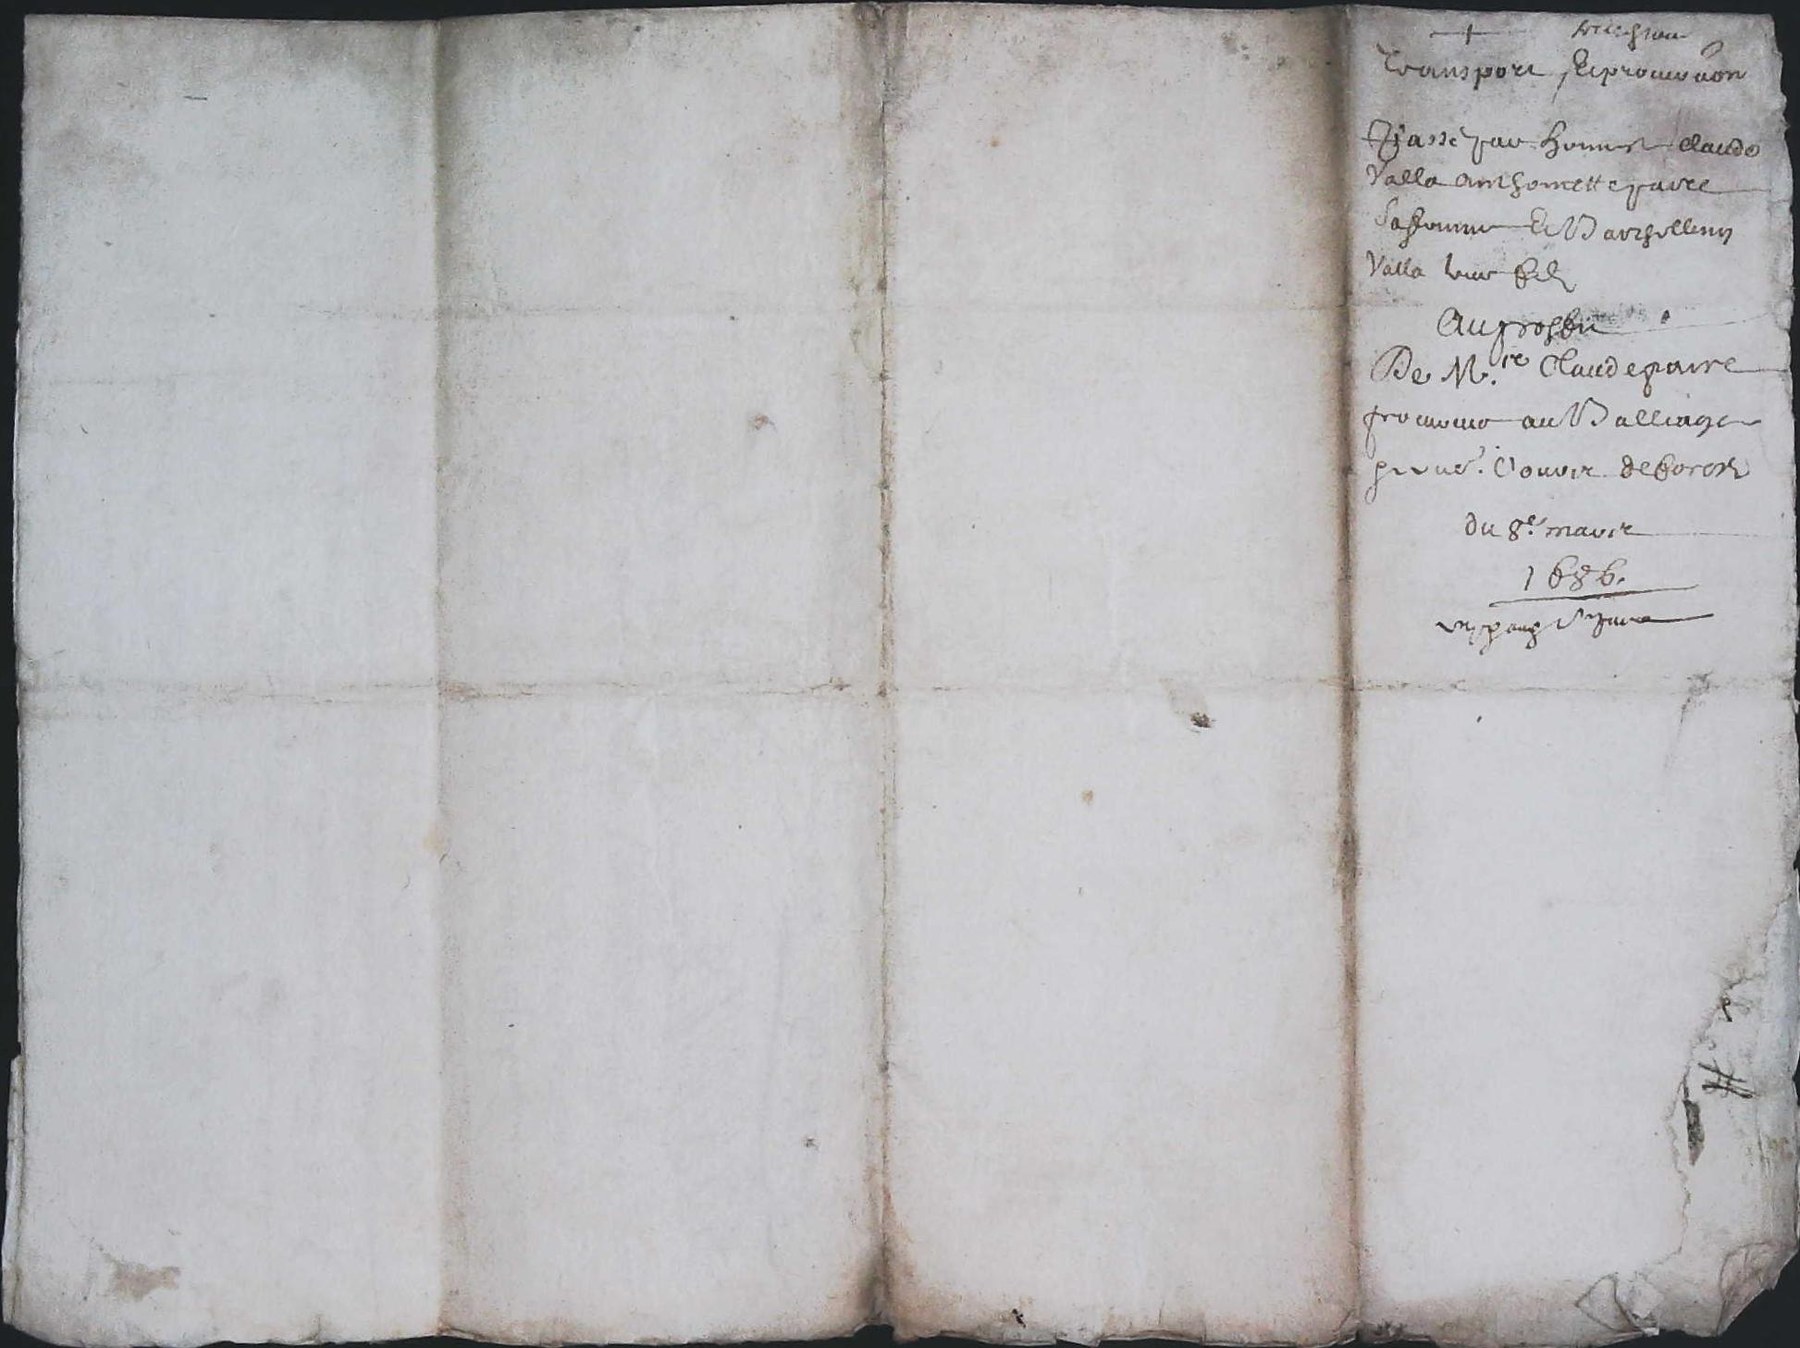 Transport, et procuration
Passé par honneste Claude
Valla anthoinette paire
Sa femme Et Barthellemy
Valla leur fils
Au proffit
De M.re Claude paire
procureur au Balliage
De forestz
du 8e. mars
1686.